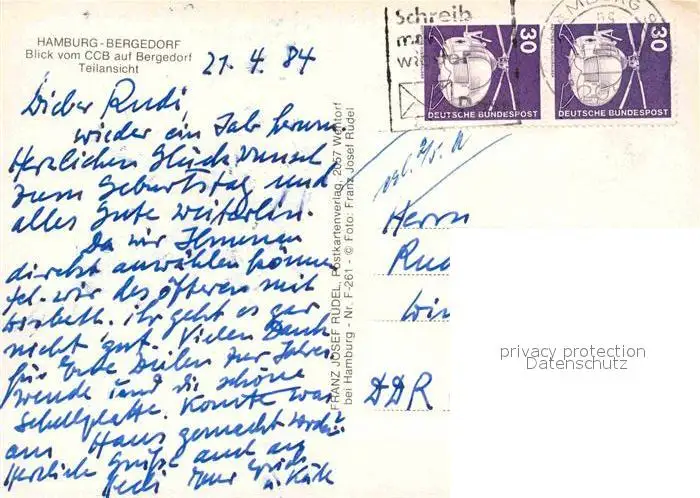 HAMBURG-BERGEDORF
Blick vom CCB auf Bergedorf
Teilansicht
21.4.84
Lieber Rudi
wieder ein Jahr herum
Herzlichen Glückwunsch
zum Geburtstag und
alles Gute weiterhin.
Da wir Ilmenau
direkt anwählen können
tel. wir des öfteren mit
ihr geht es gar
nicht gut. Vielen Dank
für Eure Zeilen zur Jahres
wende und die schöne
Schallplatte. Konnte was
am Haus gemacht werden?
Herzliche Grüße auch an
Euer Erich
u. Käth
FRANZ JOSEF RÜDEL, Postkartenverlag, 2057 Wentorf
bei Hamburg - Nr. F-261 - © Foto: Franz Josef Rüdel
Schreib
mal
wieder
30
DEUTSCHE BUNDESPOST
30
DEUTSCHE BUNDESPOST
Herrn
Rud
DDR
privacy protection
Datenschutz